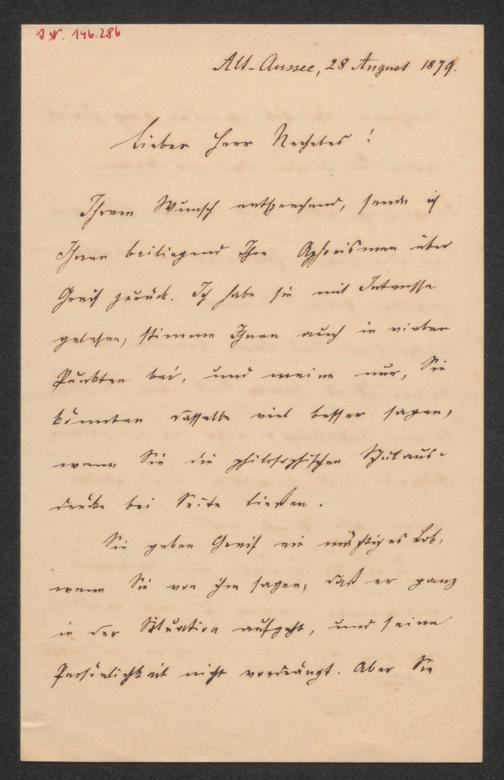 J.N. 146.286
Alt-Aussee, 28 August 1879.
Lieber Herr Necheles!
Ihrem Wunsch entsprechend, sende ich
Ihnen beiliegend Ihre Aphorismen über
Greif zurück. Ich habe sie mit Interesse
gelesen, stimme Ihnen auch in vielen
Punkten bei, und meine nur, Sie
könnten dasselbe viel besser sagen,
wenn Sie die philosophischen Schulaus-
drücke bei Seite ließen.
Sie geben Greif ein mächtiges Lob,
wenn Sie von ihm sagen, daß er ganz
in der Situation aufgeht, und seine
Persönlichkeit nicht vordrängt. Aber Sie